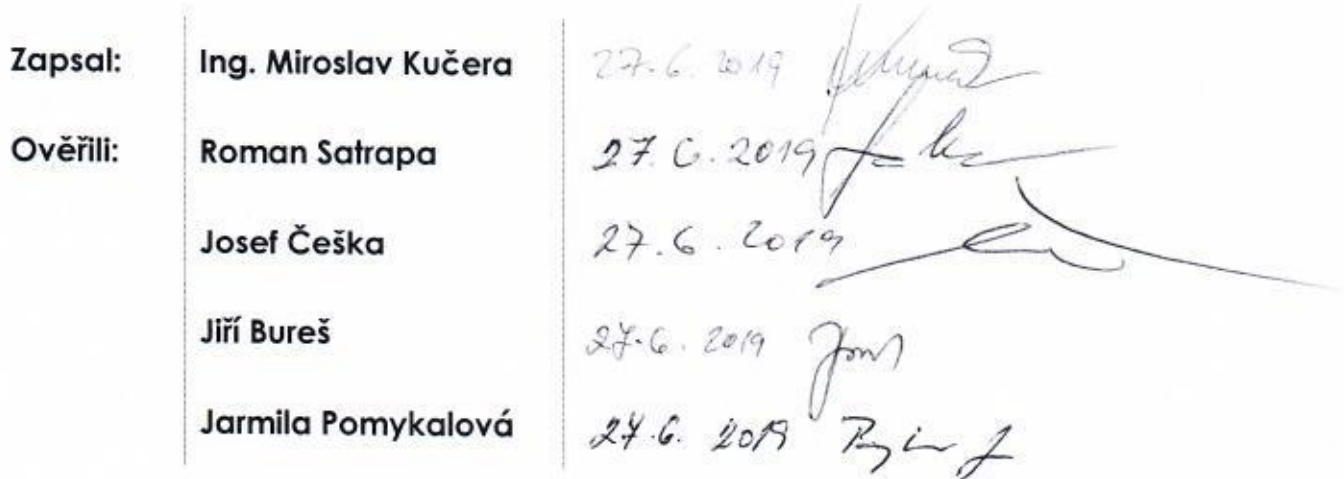 Zapsal: Ing. Miroslav Kučera 27.6.2019
Ověřili: Roman Satrapa 27.6.2019
Josef Češka 27.6.2019
Jiří Bureš 27.6.2019
Jarmila Pomykalová 27.6.2019